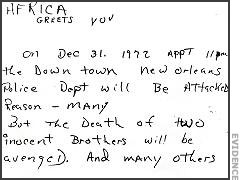 AFRICA
GREETS YOU
On Dec 31. 1972 APPT 11 pm
the Down town new orleans
Police Dept will Be Attacked
Reason - MANY
But The Death of two
inocent Brothers will be
avenged. And many others
EVIDENCE